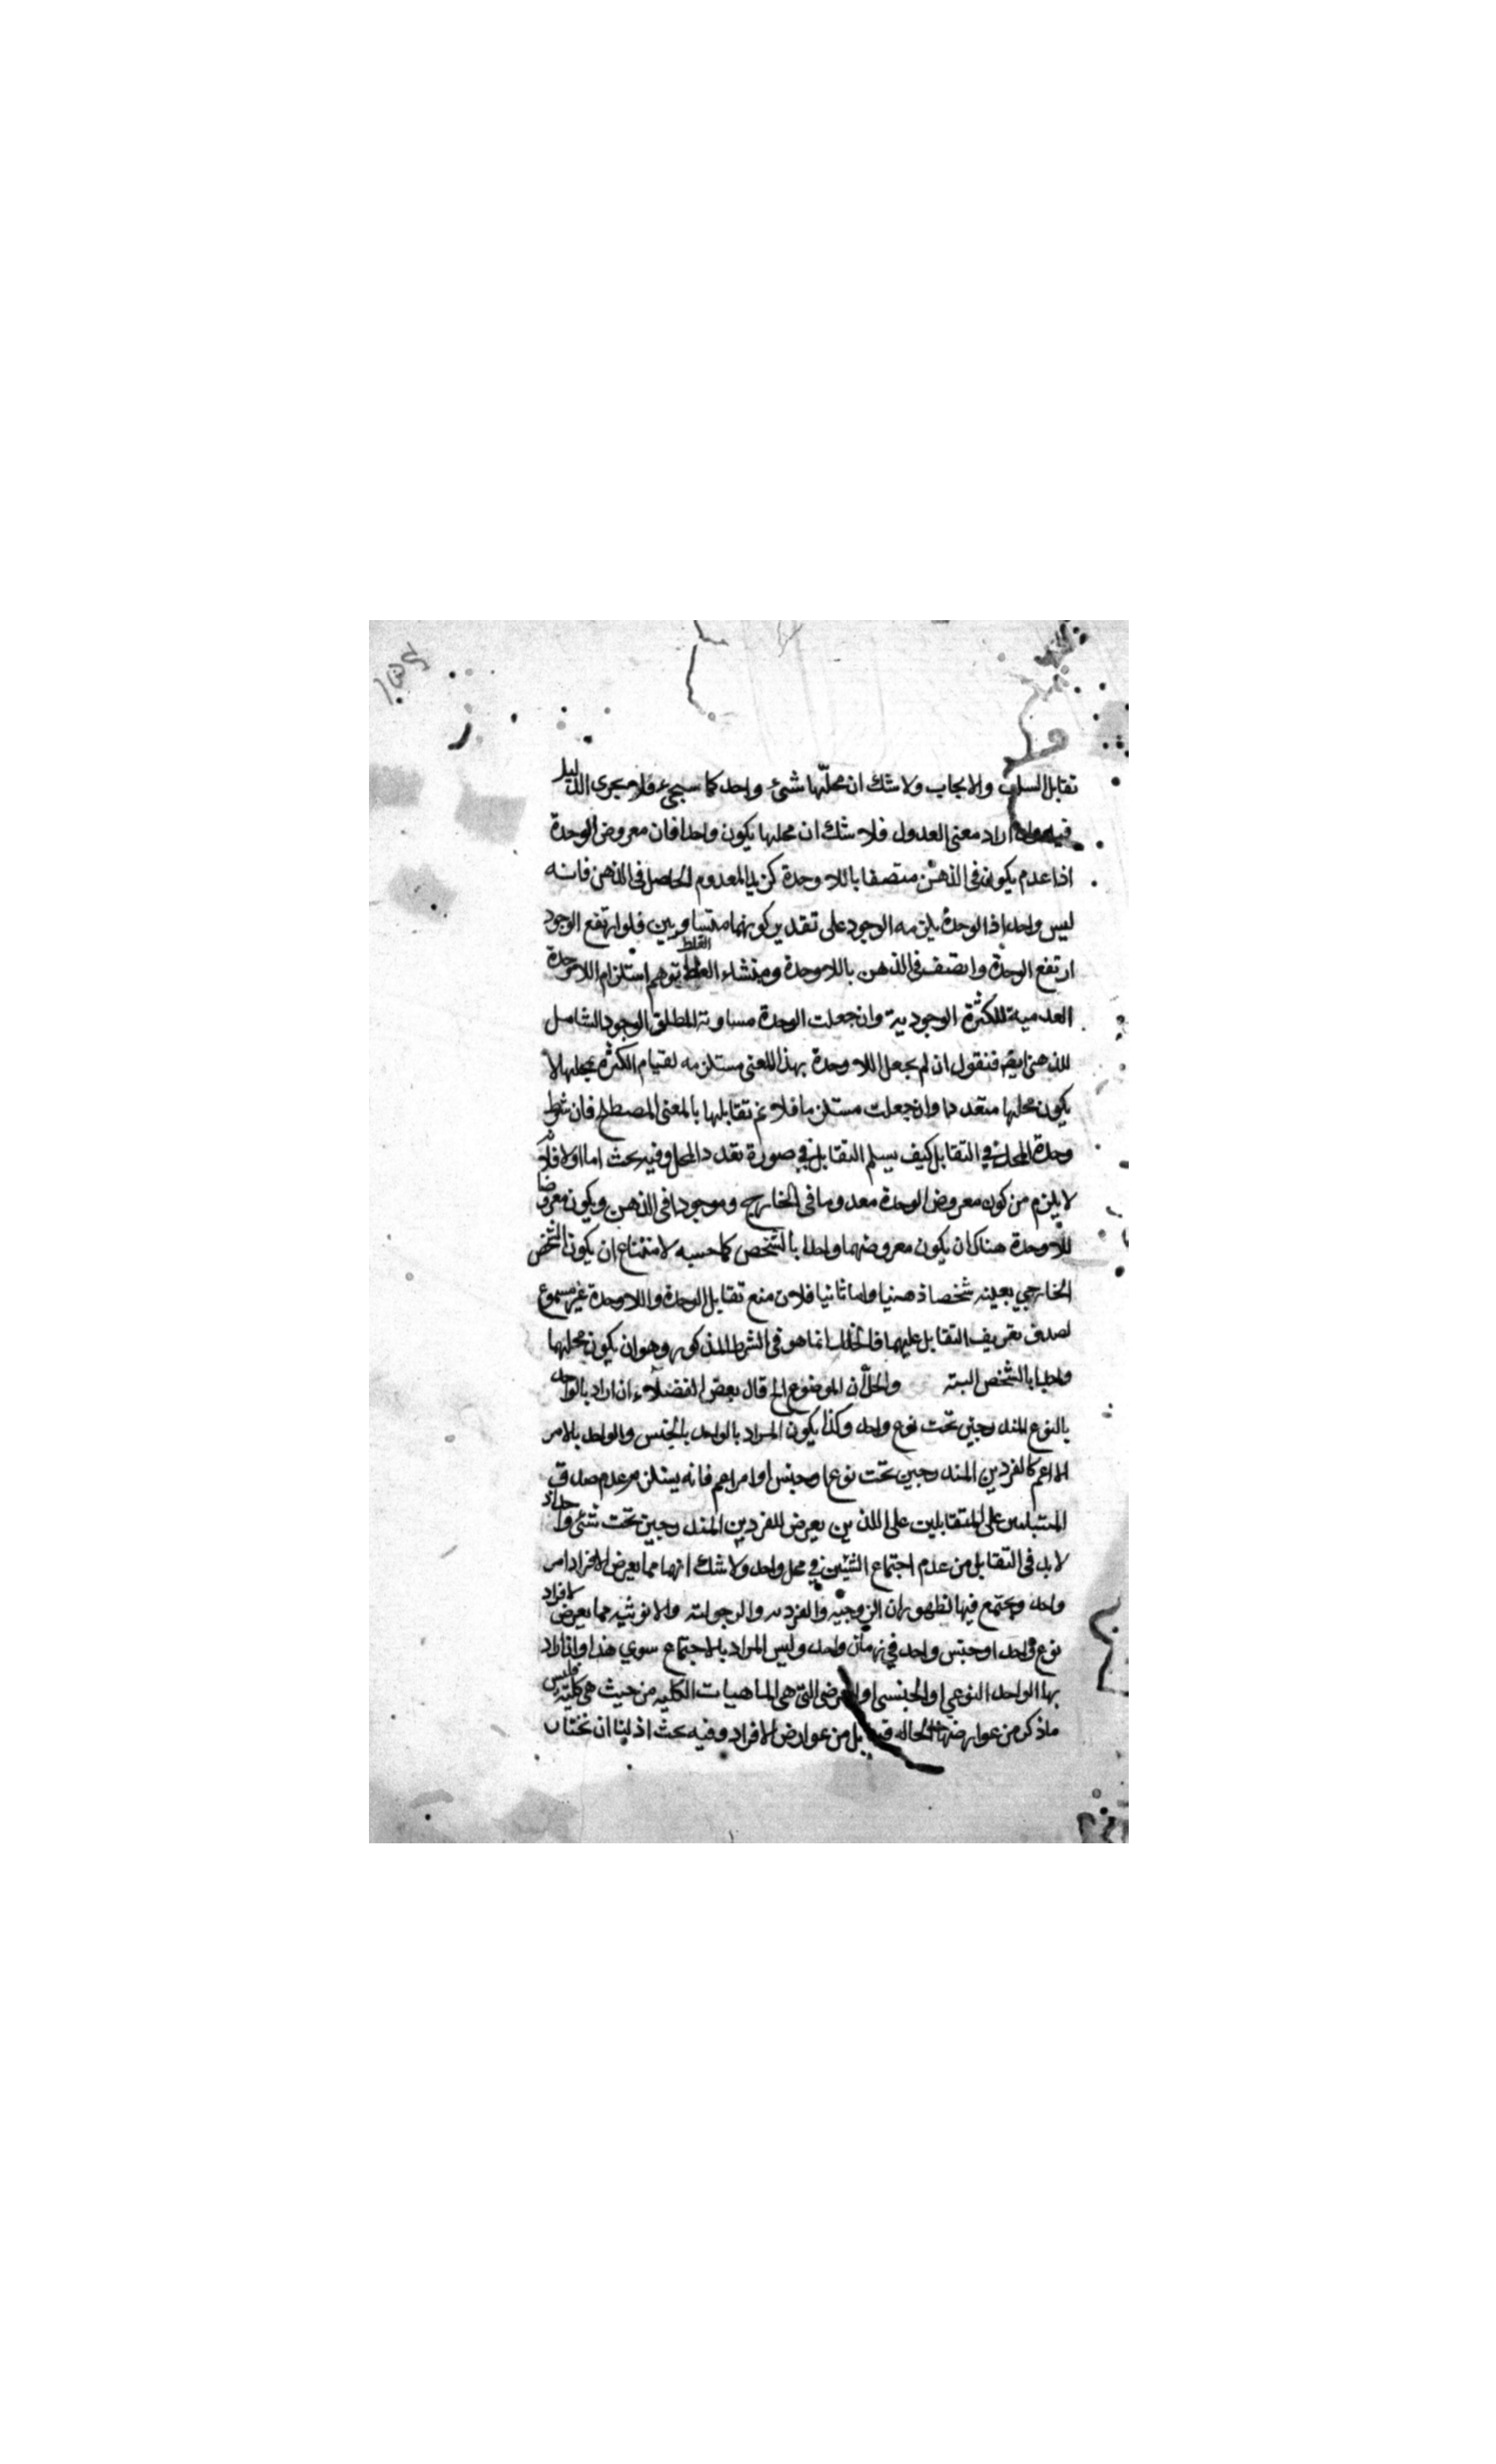 تقابل السلب والايجاب ولا شك ان محلّها شئ واحد كما سيجئ فلا مجرى الدليل
فيه وان اراد معنى العدول فلا شك ان محلها يكون واحدا فان معروض الوحدة
اذا عدم يكون فى الذهن متصفا باللاوحدة كزيد المعدوم الحاصل فى الذهن فانه
ليس واحدا اذ الوحدة يلزمه الوجود على تقدير كونهما متساويين فلو ارتفع الوجود
ارتفع الوحدة واتصف فى الذهن باللاوحدة ومنشاء الغلط توهم استلزام اللاوحدة
العدمية للكثرة الوجودية وان جعلت الوحدة مساوية لمطلق الوجود الشامل
للذهنى ايضا فنقول ان لم يجعل اللاوحدة بهذا المعنى مستلزمه لقيام الكثرة بمحلها لا
يكون محلها متعددا وان جعلت مستلزما فلا نم تقابلها بالمعنى المصطلح فان شرط
وحدة المحل فى التقابل كيف يسلم التقابل فى صورة تعدد المحل وفيه بحث اما اولا فلانه
لا يلزم من كون معروض الوحدة معدوما فى الخارج وموجودا فى الذهن ويكون معروضا
للاوحدة هناك ان يكون معروضهما واحدا بالشخص كما حسبه لامتناع ان يكون الشخص
الخارجي بعينه شخصا ذهنيا واما ثانيا فلان منع تقابل الوحدة واللاوحدة غير مسموع
لصدق تعريف التقابل عليهما فالخلل انما هو فى الشرط المذكور وهو ان يكون محلهما
واحدا بالشخص البته والحل أن الموضوع الخ قال بعض الفضلاء ان اراد بالواحد
بالنوع المندرجين تحت نوع واحد وكذا يكون المراد بالواحد بالجنس والواحد بالامر
الاعم كالفردين المندرجين تحت نوع او جنس او امر اعم فانه يستلزم عدم صدق
المتقابلين على اللذين يعرض للفردين المندرجين تحت شئ واحد اذ
لابد فى التقابل من عدم اجتماع الشيئين في محل واحد ولا شك انهما مما يعرض لافراد امر
واحد ويجتمع فيها لظهور ان الزوجيه والفرديه والرجولية والانوثيه مما يعرض لافراد
نوع واحد او جنس واحد في زمان واحد وليس المراد بالاجتماع سوي هذا وان اراد
بها الواحد النوعي او الجنسي او العرضى التى هى الماهيات الكليه من حيث هى كلية فليس
ما ذكر من عوارضها بل من عوارض الافراد وفيه بحث اذ لنا ان نختار